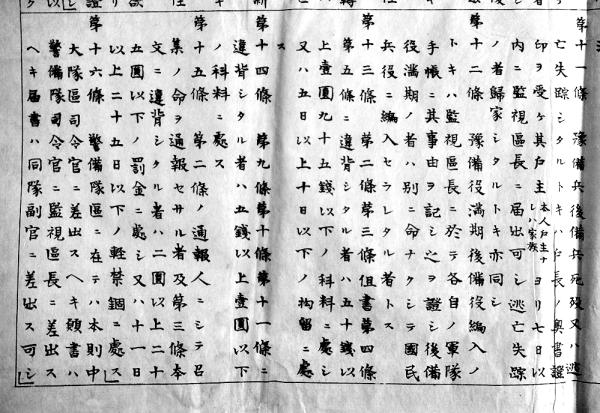 第十一條 豫備兵後備兵死歿又ハ逃
亡失踪シタルトキハ戸長ノ奥書證
印ヲ受ケ其戸主本人戸主ナレハ家族ヨリ七日以
内ニ監視區長ニ届出可シ逃亡失踪
ノ者歸家シタルトキ亦同シ
第十二條 豫備役滿期後備役編入ノ
トキハ監視區長ニ於テ各自ノ軍隊
手帳ニ其事由ヲ記シ之ヲ證シ後備
役滿期ノ者ハ別ニ命ナクシテ國民
兵役ニ編入セラレタル者トス
第十三條 第三條但書第四條
第五條ニ違背シタル者ハ五十錢以
上壹圓九十五錢以下ノ科料ニ處シ
又ハ五日以上十日以下ノ拘留ニ處
ス
第十四條 第九條第十條第十一條ニ
違背シタル者ハ五錢以上壹圓以下
ノ科料ニ處ス
第十五條 第二條ノ通報人ニシテ召
集ノ命ヲ通報セサル者及第三條本
文ニ違背シタル者ハ二圓以上二十
五圓以下ノ罰金ニ處シ又ハ十一日
以上二十五日以下ノ輕禁錮ニ處ス
第十六條 警備隊區ニ在テハ本則中
大隊區司令官ニ差出スヘキ願書ハ
警備隊司令官ニ監視區長ニ差出ス
ヘキ届書ハ同隊副官ニ差出ス可シ